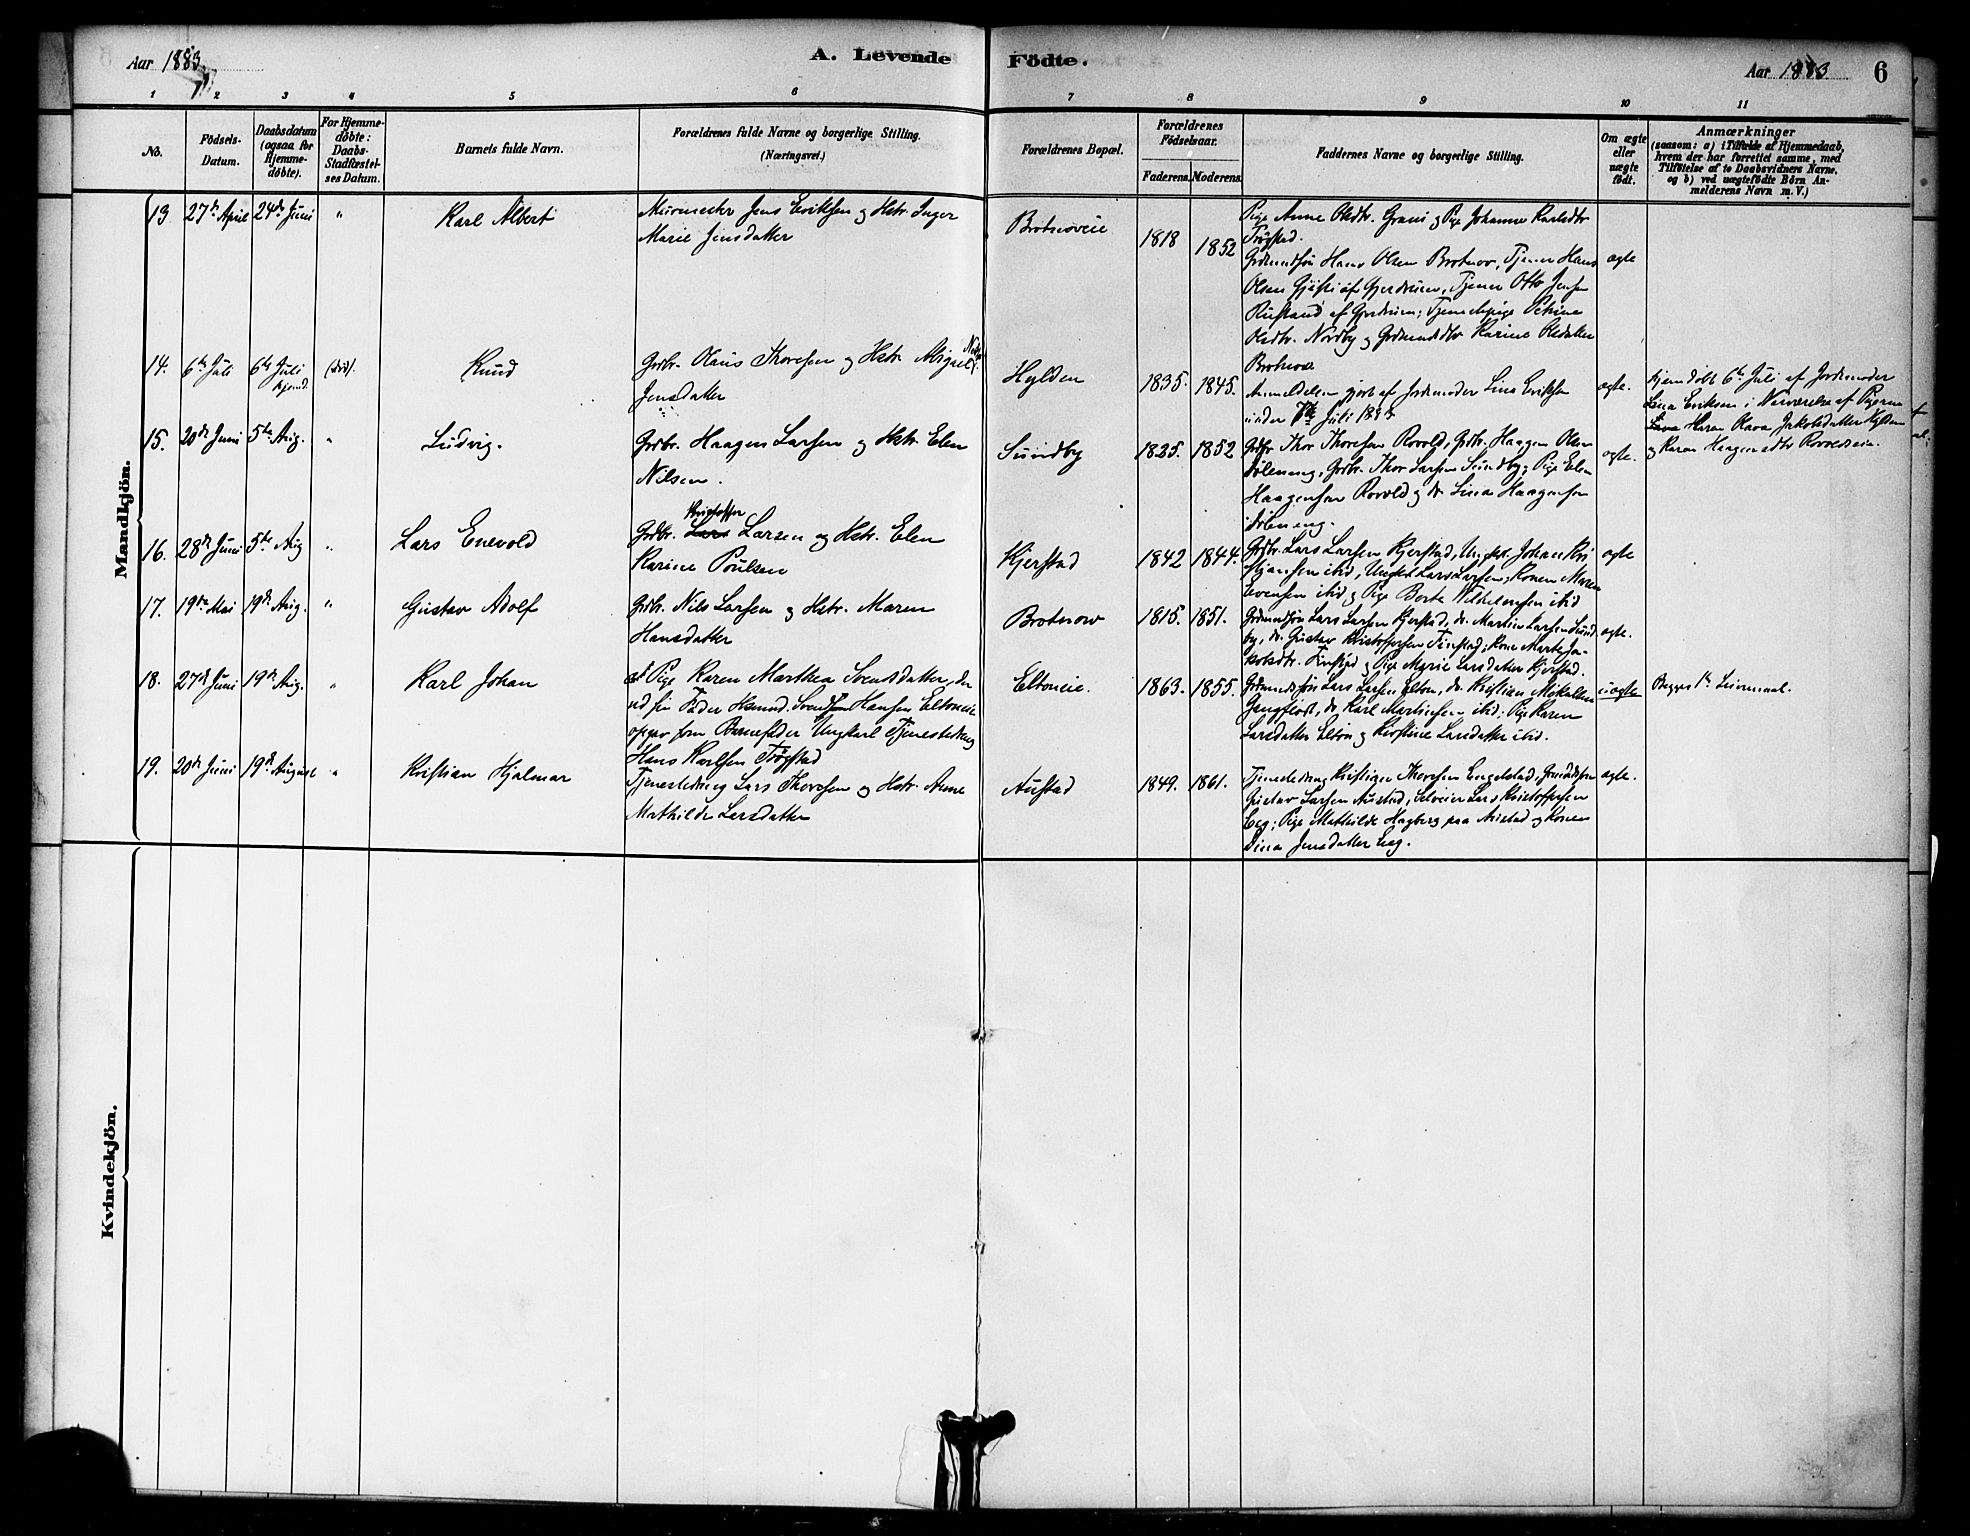 Aar 1883.
A. Levende Födte.
Aar 1883.
6
1 2 3 4 5 6 7 8 9 10 11
No.
Födsels-Datum.
Daabsdatum (ogsaa for Hjemme-döbte).
For Hjemme-döbte: Daabs-Stadfæstel-ses Datum.
Barnets fulde Navn.
Forældrenes fulde Navne og borgerlige Stilling.
(Næringsvei.)
Forældrenes Bopæl.
Forældrenes Födselsaar.
Faderens. Moderens.
Faddernes Navne og borgerlige Stilling.
Om ægte eller uægte födt.
Anmærkninger
(saasom: a) i Tilfælde af Hjemmedaab,
hvem der har forrettet samme, med
Tilföielse af to Daabsvidners Navne,
og b) ved uægtefödte Börn An-
melderens Navn m. V.)
Mandkjön.
13 27de April 24de Juni " Karl Albert
Murmester Jens Eriksen og Hstr. Inger
Marie Jensdatter
Brotnoveie 1818 1852
Pige Anne Olsdtr. Grani og Pige Johanne Karlsdtr
Trögstad.
Grdmandssön Hans Olsen Brotnov, Tjener Hans
Olsen af Gjerdrum, Tjener Otto Jensen
Rustand af Gjerdrum; Tjenestepige Petrine
Olsdtr. Nordby og Grdmandsdtr Karine Olsdatter
Brotnov
ægte
14. 6te Juli 6te Juli hjemd. (död). Knud
Grdbr. Olaus Thoresen og Hstr. Abigael
Jensdatter
Hylden 1835. 1845.
Anmeldelsen gjort af Jordemoder Lina Eriksen
under 7de Juli 1883
ægte.
Hjemdöbt 6te Juli af Jordemoder
Lina Eriksen i Nærværelse af Pigerne
Olava Jakobsdatter Hylden
og Karen Haagensdtr
15. 20de Juni 5te Aug. " Ludvig.
Grdbr. Haagen Larsen og Hstr. Elen
Nilsen.
Sundby 1825. 1852
Grdbr Thor Thoresen Rovold, Grdbr. Haagen Olsen
Döleneng, Grdbr. Thor Larsen Sundby; Pige Elen
Haagensen Rovold og do Lina Haagensen
Döleneng.
ægte.
16. 28de Juni 5te Aug " Lars Enevold
Kristoffer
Grdbr. Lars Larsen og Hstr. Elen
Karine Poulsen
Kjerstad 1842 1844.
Grdbr. Lars Larsen Kjerstad, Ungk. Johan Kri
stjansen ibid, Ungk. Lars Larsen, Konen Maren
Evensen ibid og Pige Berte Wilhelmsen ibid
ægte
17. 19de Mai 19de Aug. " Gustav Adolf
Grdbr. Nils Larsen og Hstr. Maren
Hansdatter
Brotnow 1815. 1851.
Grdmandssön Lars Larsen Kjerstad, do. Martin Larsen Sund
by, do. Gustav Kristoffersen Finstad; Kone Marte Ja-
kobsdtr. Finstad og Pige Marie Larsdatter Kjerstad.
ægte.
18. 27de Juni 19de Aug. " Karl Johan
af Pige Karen Marthea Svendsdatter, der
ved sin Fader Husmd. Svend Hansen Eltoneie
opgav som Barnefader Ungkarl Tjenestedreng
Hans Karlsen Trögstad
Eltoneie. 1863. 1855.
Grdmandssön Lars Larsen Elton, do. Kristian Mikalsen
do. Karl Martinsen ibid; Pige Karen
Larsdatter Elton og Kirstine Larsdatter ibid.
uægte
Begges 1ste Leiermaal.
19. 20de Juni 19de August " Kristian Hjalmar
Tjenestedreng Lars Thoresen og Hstr. Anne
Mathilde Larsdatter
Austad 1849. 1861.
Tjenestedreng Kristian Thoresen Engelstad, Grmdssön
Gustav Larsen Austad, Selveier Lars Kristoffersen
Eeg; Pige Mathilde Hagberg paa Austad og Konen
Dina Jensdatter Eeg.
ægte.
Kvindekjön.